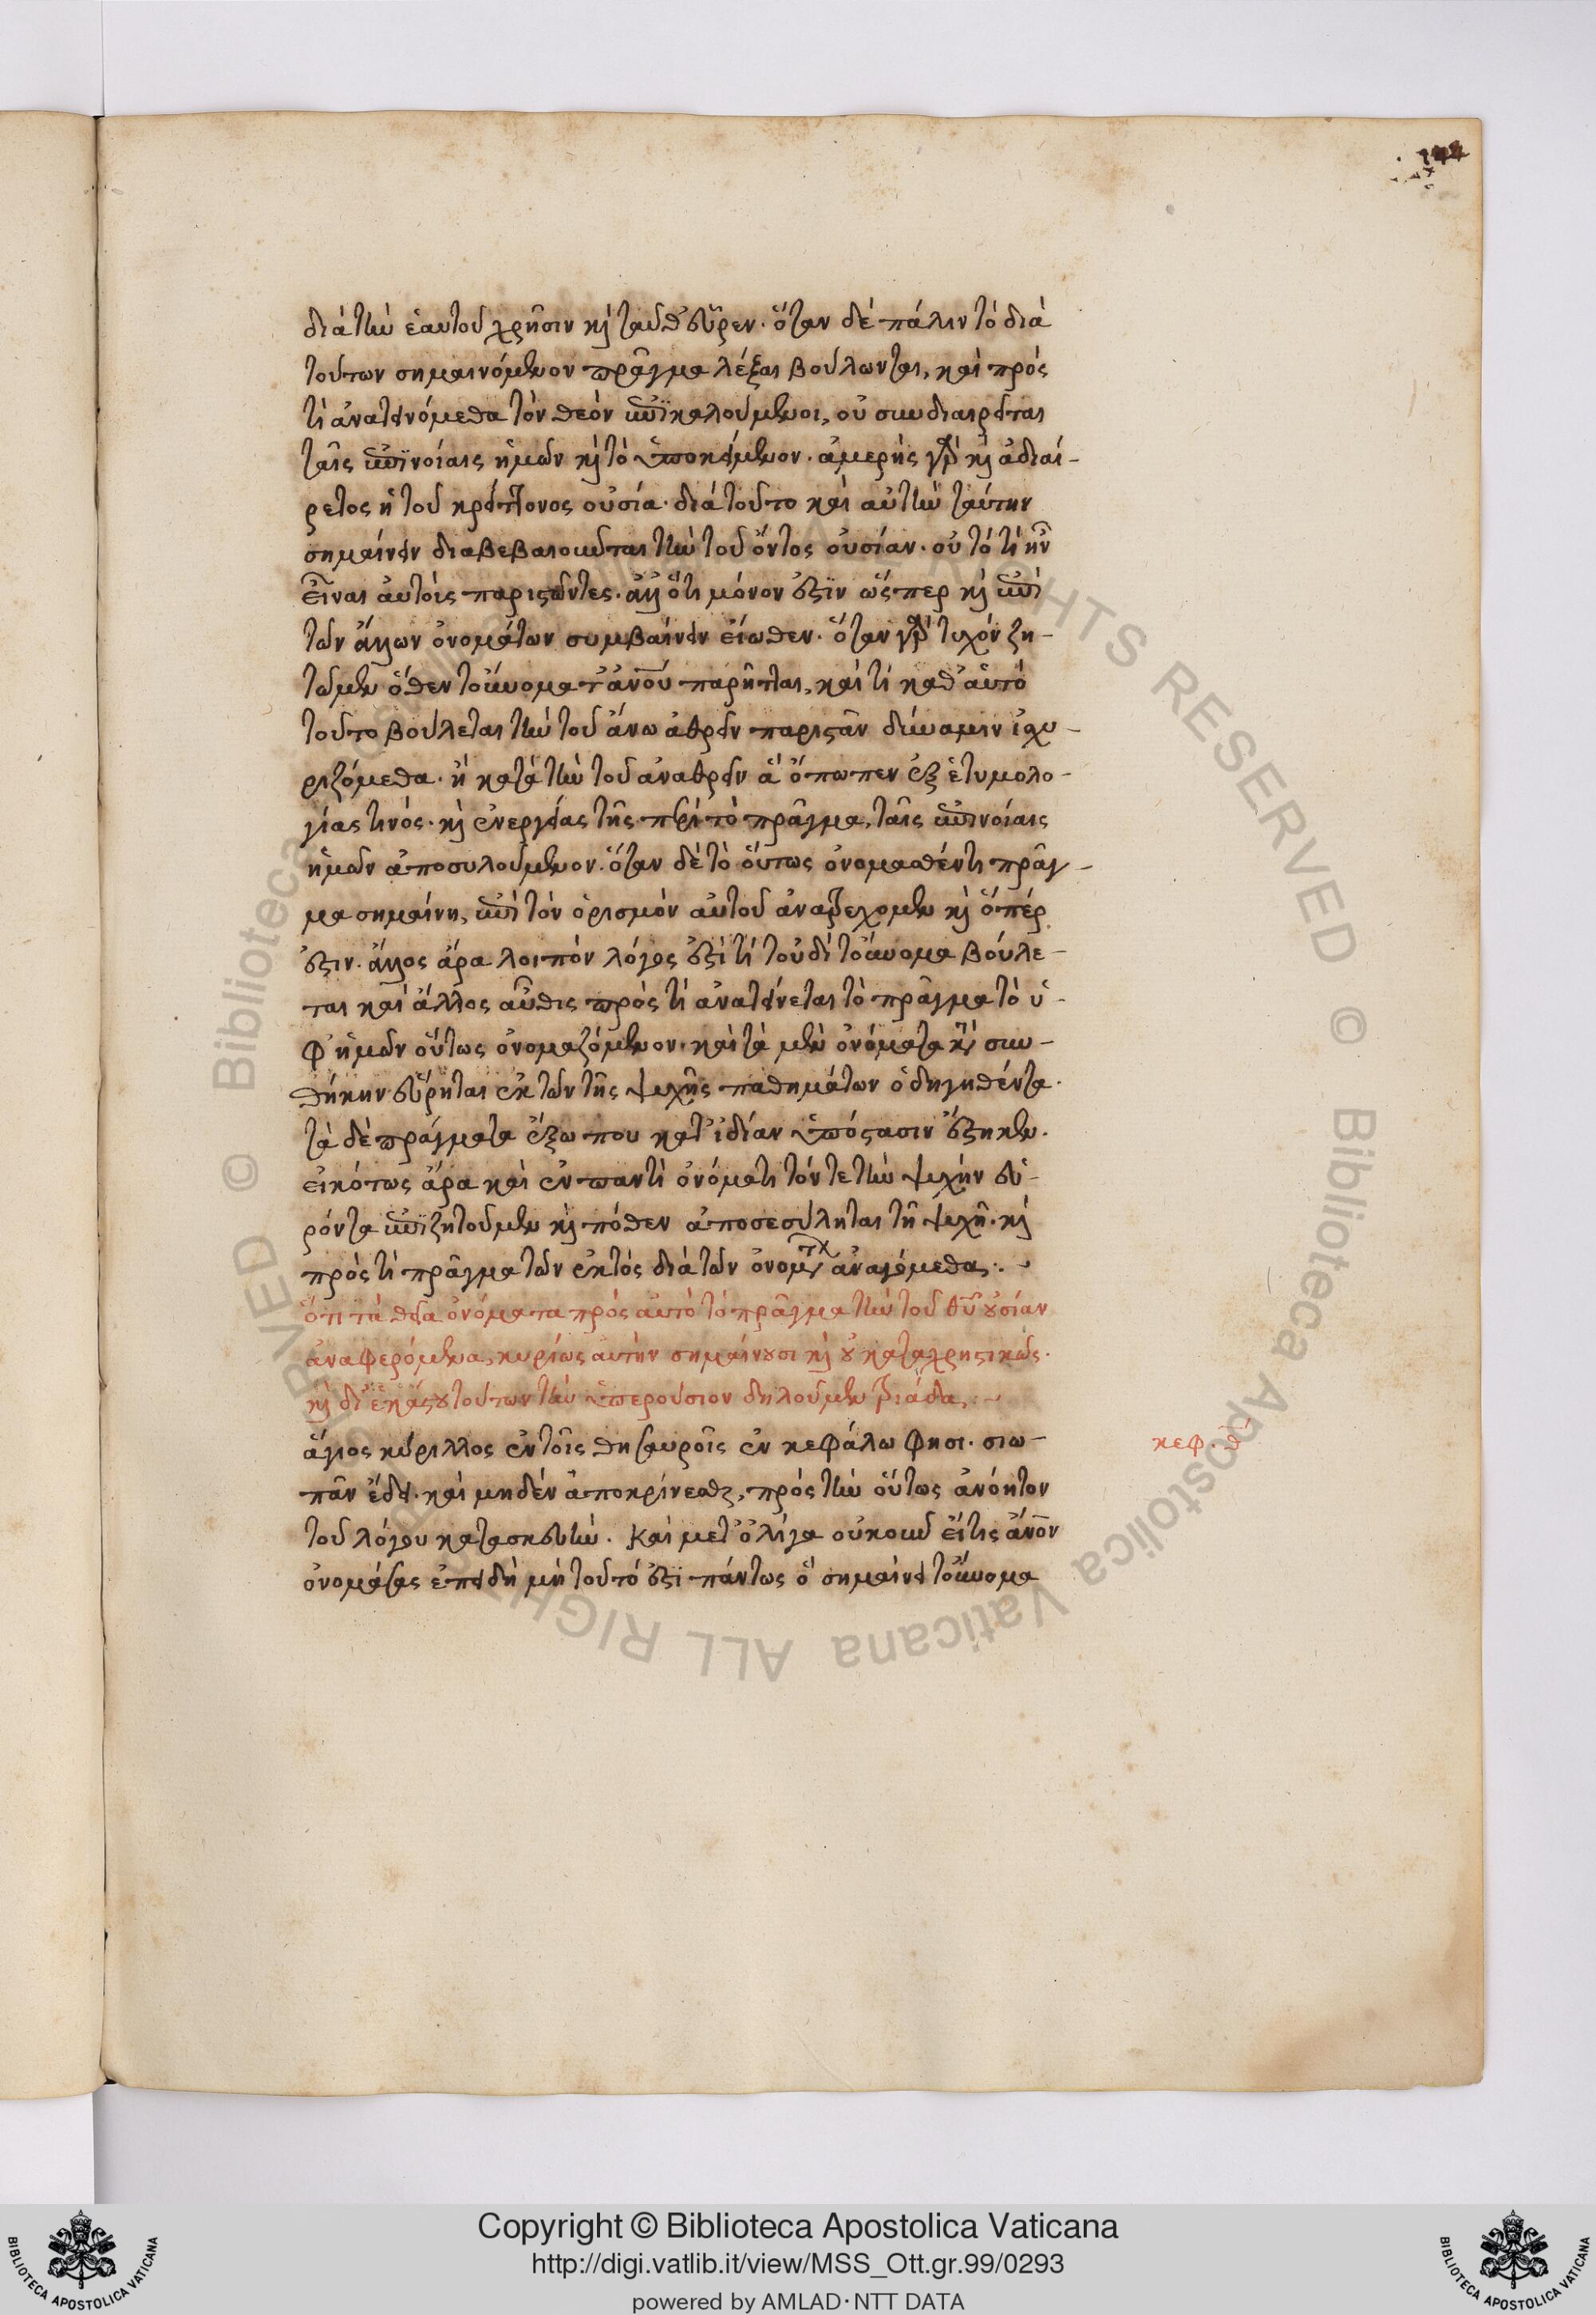 144
διὰ τὴν ἑαυτοῦ χρῆσιν καὶ ταῦθ' εὗρεν. ὅταν δὲ πάλιν τὸ διὰ
τούτων σημαινόμενον πρᾶγμα λέξαι βούλωνται, καὶ πρὸς
τί ἀνατεινόμεθα τὸν θεὸν ἐπικαλούμενοι, οὐ συνδιαιρεῖται
ταῖς ἐπινοίαις ἡμῶν καὶ τὸ ὑποκείμενον. ἀμερὴς γὰρ καὶ ἀδιαί-
ρετος ἡ τοῦ κρείττονος οὐσία. διὰ τοῦτο καὶ αὐτὴν ταύτην
σημαίνειν διαβεβαιοῦνται τὴν τοῦ ὄντος οὐσίαν. οὐ τὸ τί ἦν
εἶναι αὐτοῖς παριστῶντες. ἀλλ' ὅτι μόνον ἐστὶν ὥσπερ καὶ ἐπὶ
τῶν ἄλλων ὀνομάτων συμβαίνειν εἴωθεν. ὅταν γὰρ τυχὸν ζη-
τῶμεν ὅθεν τοὔνομα τ ἀνου παρῆκται, καὶ τί καθ' αὑτὸ
τοῦτο βούλεται τὴν τοῦ ἄνω ἀθρεῖν παριστᾶν δύναμιν ἰσχυ-
ριζόμεθα. ἢ κατὰ τὴν τοῦ ἀναθρεῖν ἃ ὄπωπεν ἐξ ἐτυμολο-
γίας τινός. καὶ ἐνεργείας τῆς περὶ τὸ πρᾶγμα, ταῖς ἐπινοίαις
ἡμῶν ἀποσυλούμενον. ὅταν δὲ τὸ οὕτως ὀνομασθέντι πρᾶγ-
μα σημαίνῃ, ἐπὶ τὸν ὁρισμὸν αὐτοῦ ἀνατρέχομεν καὶ ὅπέρ
ἐστιν. ἄλλος ἄρα λοιπὸν λόγος ἐστὶ τί τουδὶ τοὔνομα βούλε-
ται καὶ ἄλλος αὖθις πρὸς τί ἀνατείνεται τὸ πρᾶγμα τὸ ὑ-
φ' ἡμῶν οὕτως ὀνομαζόμενον. καὶ τὰ μὲν ὀνόματα κατὰ συν-
θήκην εὕρηται ἐκ τῶν τῆς ψυχῆς παθημάτων ὁδηγηθέντα.
τὰ δὲ πράγματα ἔξω που κατ' ἰδίαν ὑπόστασιν ἔστηκεν.
εἰκότως ἄρα καὶ ἐν παντὶ ὀνόματι τόν τε τὴν ψυχὴν εὑ-
ρόντα ἐπιζητοῦμεν καὶ πόθεν ἀποσεσύληται τῇ ψυχῇ. καὶ
πρὸς τί πρᾶγμα τῶν ἐκτὸς διὰ τῶν ὀνομάτων ἀναγόμεθα:. -
ὅτι τὰ θεῖα ὀνόματα πρὸς αὐτὸ τὸ πρᾶγμα τὴν τοῦ θῦ οὐσίαν
ἀναφερόμενα, κυρίως αὐτὴν σημαίνουσι καὶ οὐ καταχρηστικῶς.
καὶ δι' ἑκάστου τούτων τὴν ὑπερούσιον δηλοῦμεν τριάδα, :-
ἅγιος κύριλλος ἐν τοῖς θησαυροῖς ἐν κεφάλω φησι. σιω-
πᾶν ἔδει. καὶ μηδὲν ἀποκρίνεσθαι, πρὸς τὴν οὕτως ἀνόητον
τοῦ λόγου κατασκευήν. καὶ μετ' ὀλίγα οὐκοῦν εἴ τις ἄνον
ὀνομάσας ἐπειδὴ μὴ τοῦτό ἐστι πάντως ὃ σημαίνει τοὔνομα
κεφ. θ
Copyright © Biblioteca Apostolica Vaticana
http://digi.vatlib.it/view/MSS_Ott.gr.99/0293
powered by AMLAD·NTT DATA
BIBLIOTECA APOSTOLICA VATICANA
BIBLIOTECA APOSTOLICA VATICANA
© Biblioteca Apostolica Vaticana ALL RIGHTS RESERVED